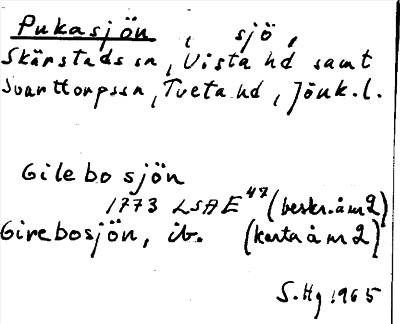 Pukasjön, sjö,
Skärstads sn, Vista hd samt
Svarttorps sn, Tveta hd, Jönk.l.
Gilebo sjön
1773 LSA E 47 (beskr. å m 2)
Girebosjön, ib. (karta å m 2)
S. Hg 1965